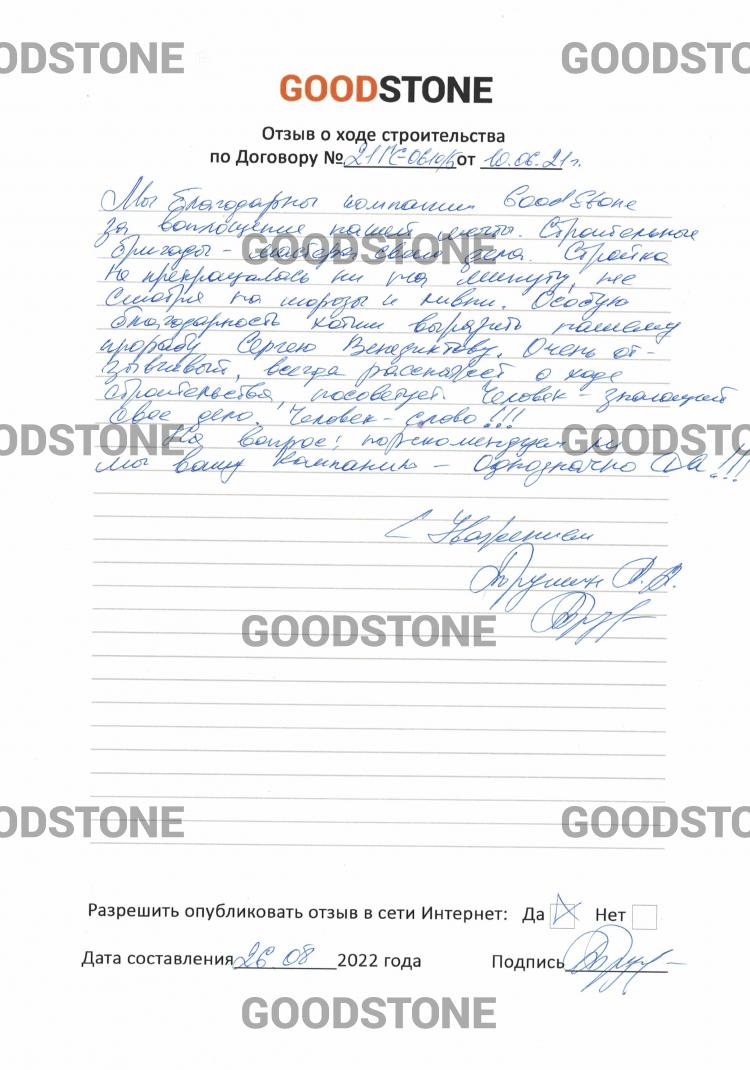 GOODSTONE
Отзыв о ходе строительства
по Договору № от 10.06.21г.
Мы благодарны компании GoodStone
за воплощение нашей мечты. Строительные
бригады - мастера своего дела. Стройка
не прекращалась ни на минуту, не
смотря на морозы и ливни. Особую
благодарность хотим выразить нашему
прорабу Сергею Венедиктову. Очень от-
зывчивый, всегда расскажет о ходе
строительства, посоветует. Человек - знающий
свое дело, Человек - слово!!!
На вопрос: порекомендуем ли
мы вашу компанию - Однозначно ДА!!!
С Уважением
Разрешить опубликовать отзыв в сети Интернет: Да Нет
Дата составления 26.08 2022 года Подпись
GOODSTONE
GOODSTONE
GOODSTONE
GOODSTONE
GOODSTONE
GOODSTONE
GOODSTONE
GOODSTONE
GOODSTONE